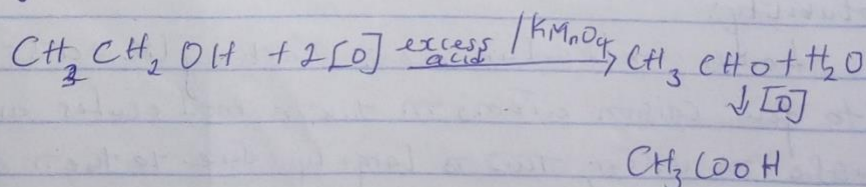 CH3 CH2 OH + 2[O] excess acid / KMnO4 → CH3 CHO + H2O
↓ [O]
CH3 COOH